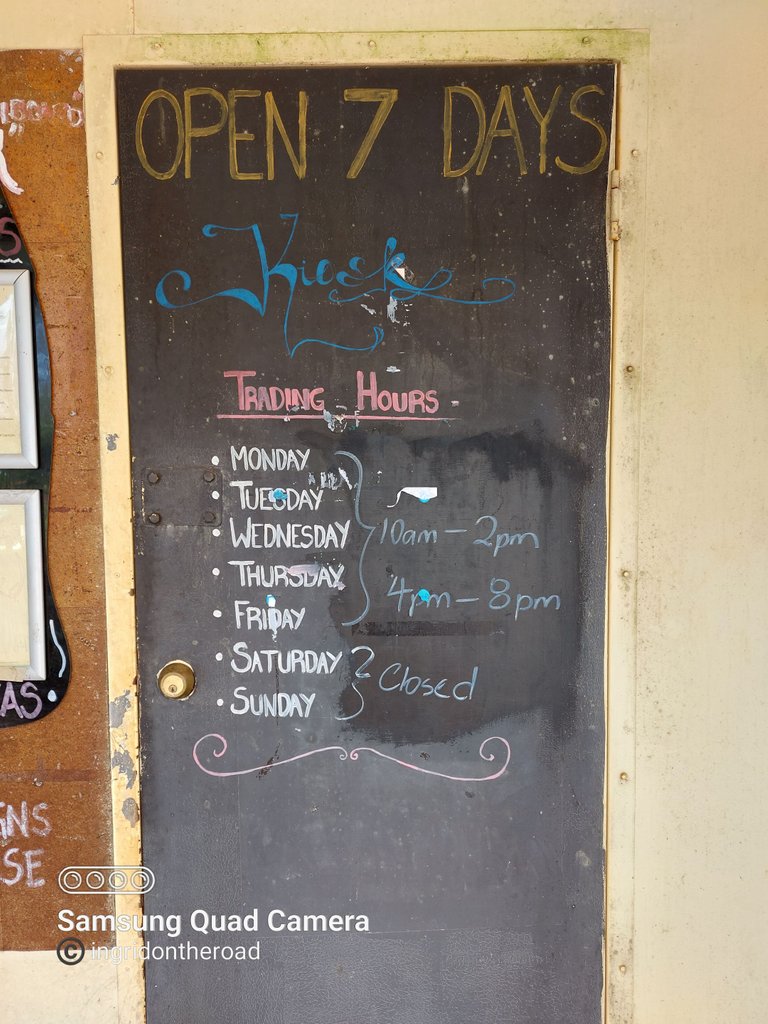 OPEN 7 DAYS
Kiosk
TRADING HOURS
• MONDAY
• TUESDAY
• WEDNESDAY
• THURSDAY
• FRIDAY
10am – 2pm
4pm – 8pm
• SATURDAY
• SUNDAY
Closed
Samsung Quad Camera
© ingridontheroad